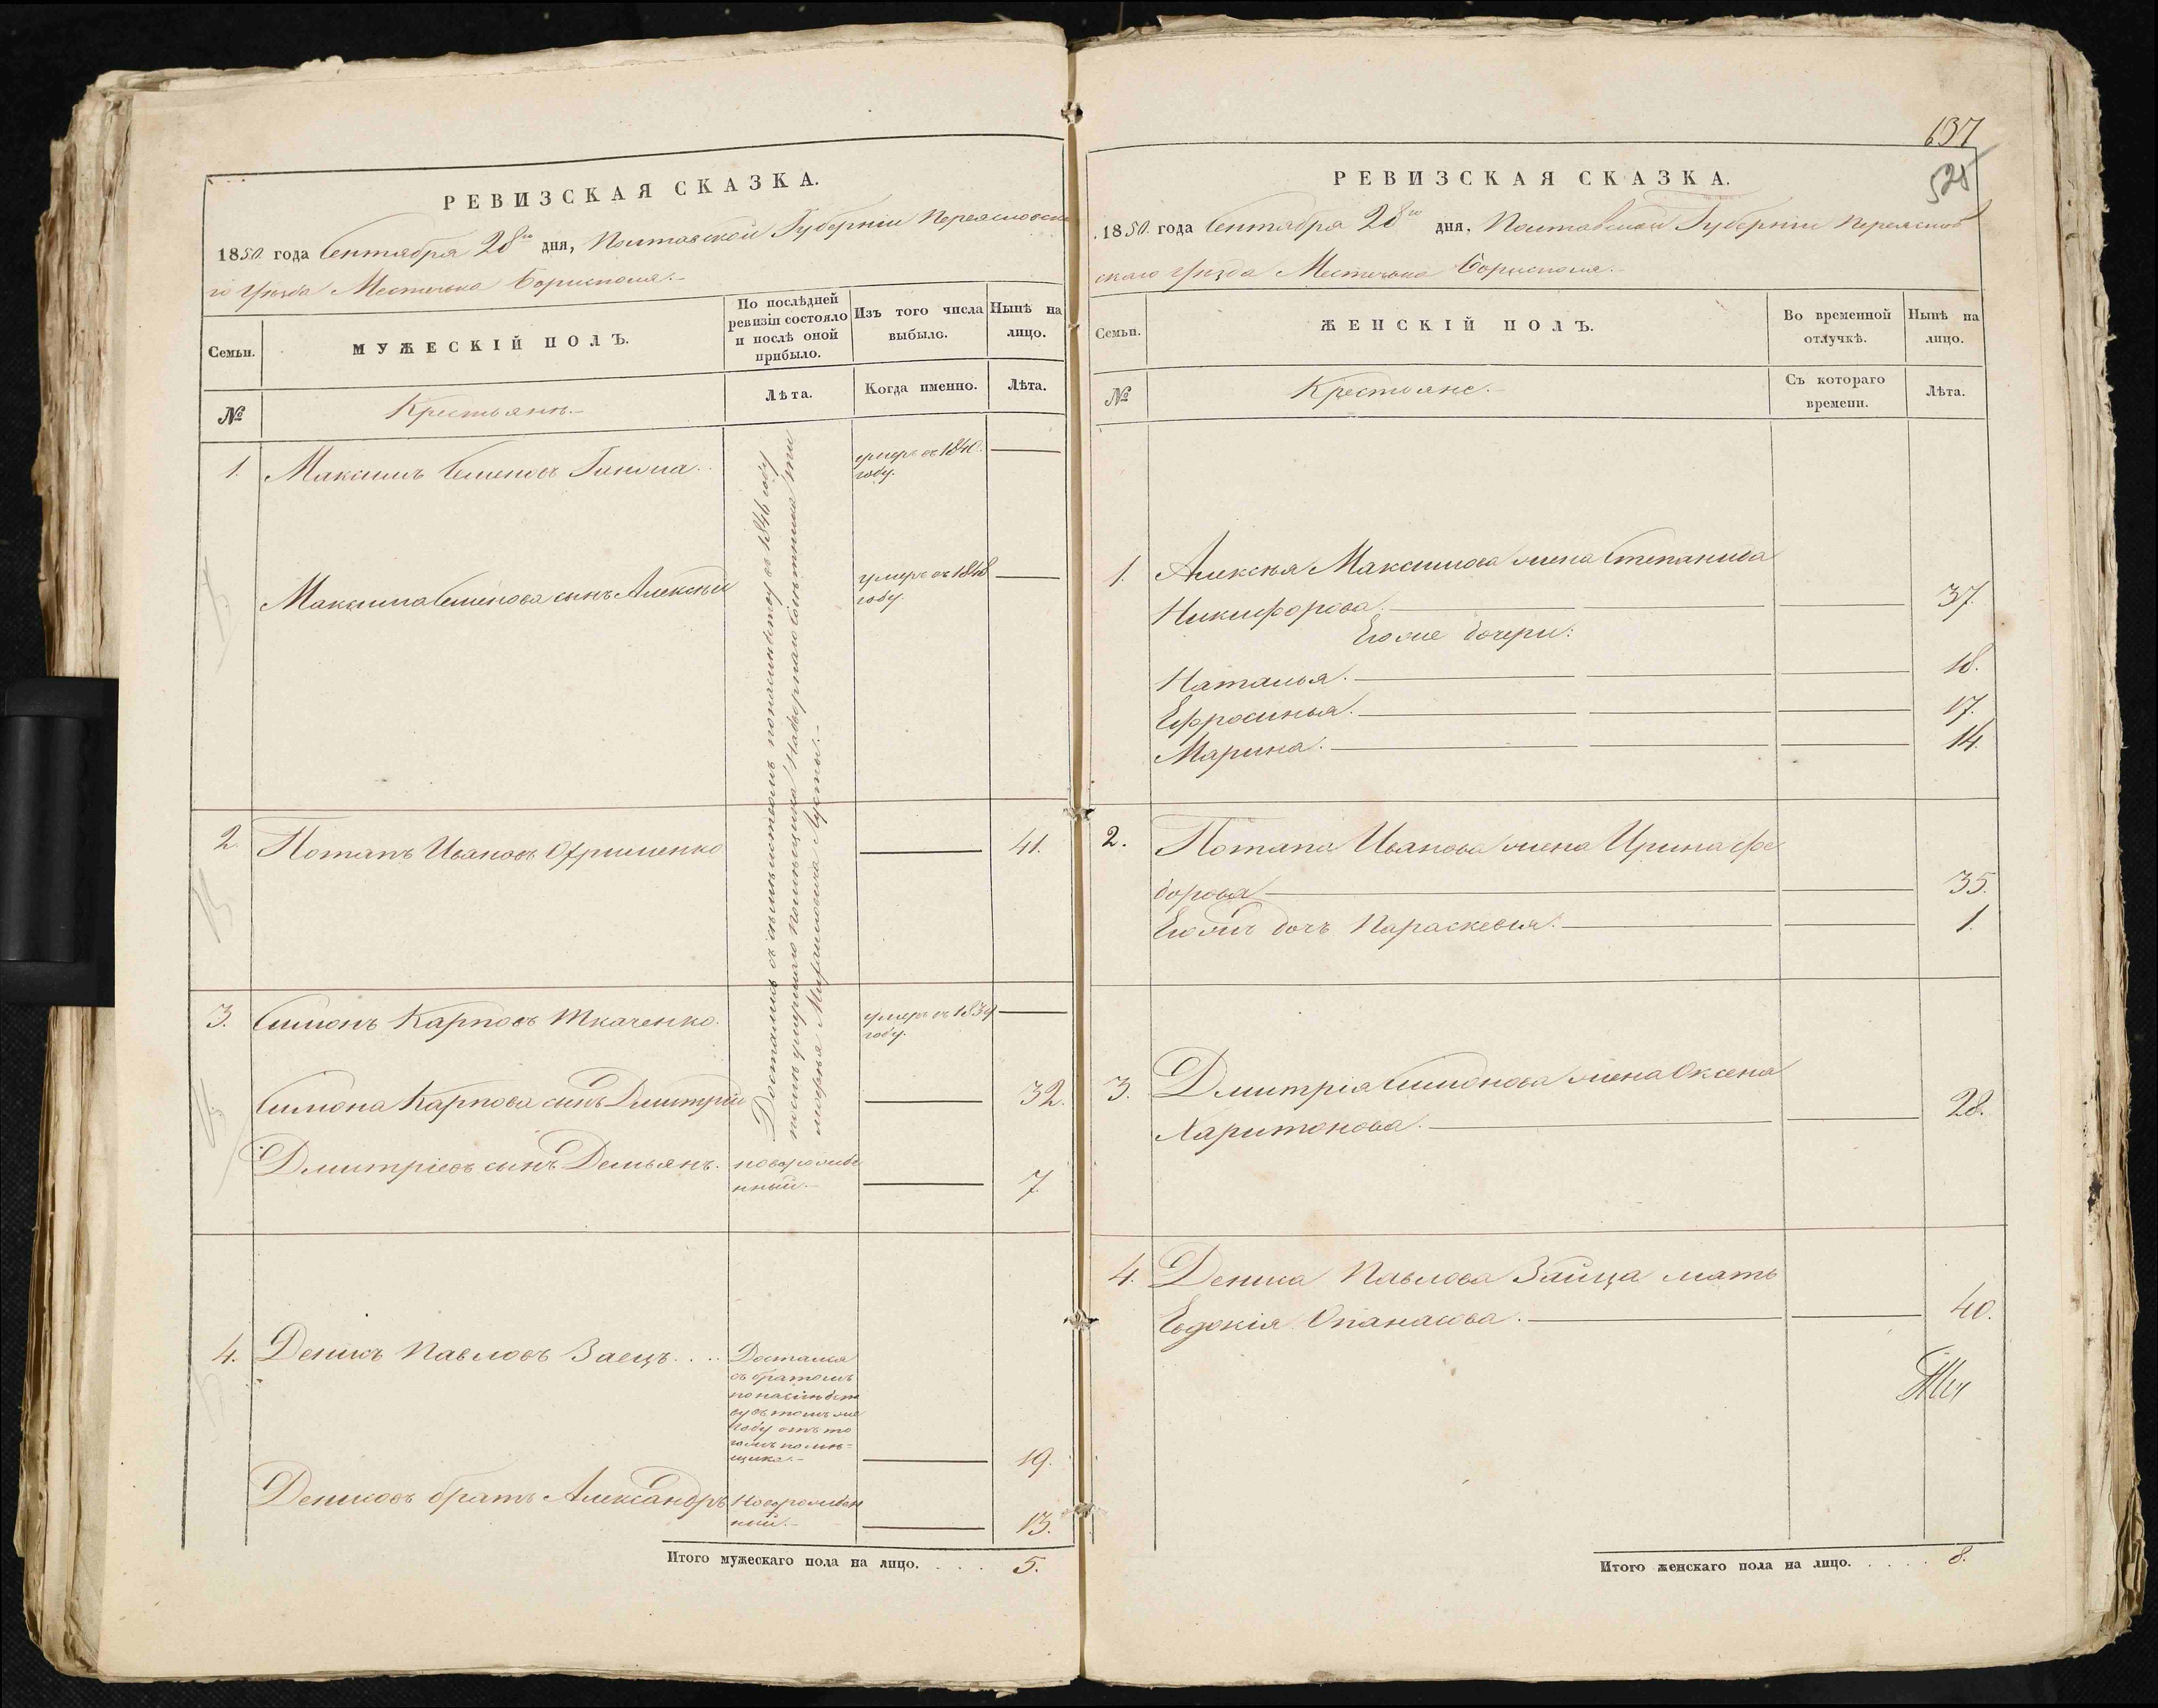 РЕВИЗСКАЯ СКАЗКА.
1850 года Сентября 28го дня, Полтавской Губернии Переясловска
го Уѣзда Местечка Борисполя.
Семьи.
МУЖЕСКІЙ ПОЛЪ.
По послѣдней
ревизіи состояло
и послѣ оной
прибыло.
Изъ того числа
выбыло.
Нынѣ на
лицо.
№
Крестьяне.
Лѣта.
Когда именно.
Лѣта.
1. Максимъ Семеновъ
умеръ въ 1840
году.
Максима Семенова сынъ Алексѣй
умеръ въ 1848
году.
Достались съ семействомъ по наслѣдству въ 1846 году
помѣщика
2 Потапъ Ивановъ 41.
3. Симонъ Карповъ Ткаченко.
умеръ въ 1839
году.
Симона Карпова сынъ Дмитрій 32.
Дмитріевъ сынъ Демьянъ. новорожде
нный. 7
4. Денисъ Павловъ Заецъ. . . . Достался
съ братомъ
по наслѣдст
ву въ томъ же
году отъ то
гожъ помѣ-
щика. 19.
Денисовъ братъ Александръ Новорожден
ный. 13.
Итого мужескаго пола на лицо. . . . . 5.
637
525
РЕВИЗСКАЯ СКАЗКА.
1850 года Сентября 28го дня, Полтавской Губерніи Переяслов
скаго Уѣзда Местечка Борисполя.
Семьи.
ЖЕНСКІЙ ПОЛЪ.
Во временной
отлучкѣ.
Нынѣ на
лицо.
№
Крестьяне.
Съ котораго
времени.
Лѣта.
1. Алексѣя Максимова жена Степанида
Никифорова. 37.
Егоже дочери:
Наталья. 18.
Ефросинья. 17.
Марина. 14.
2. Потапа Иванова жена Ирина Фе
дорова 35.
Егожъ дочь Параскевія. 1.
3. Дмитрія Симонова жена Оксена
Харитонова. 28.
4. Дениса Павлова Зайца мать
Евдокія Опанасова. 40.
Итого женскаго пола на лицо. . . . . 8.